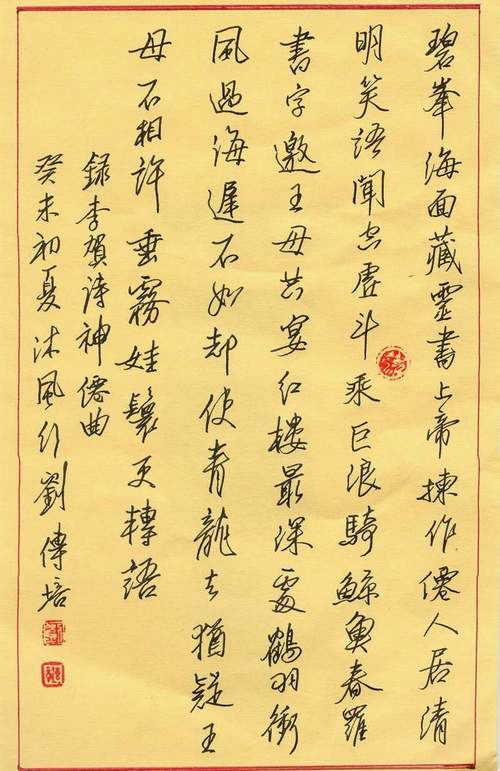 碧峯海面藏靈書上帝揀作僊人居清
明笑語聞空虛斗乘巨浪騎鯨魚春羅
書字邀王母共宴紅樓最深處鶴羽衝
風過海遲不如却使青龍去猶疑王
母不相許垂霧娃鬟更轉語
録李賀诗神僊曲
癸未初夏沐風行劉傳培